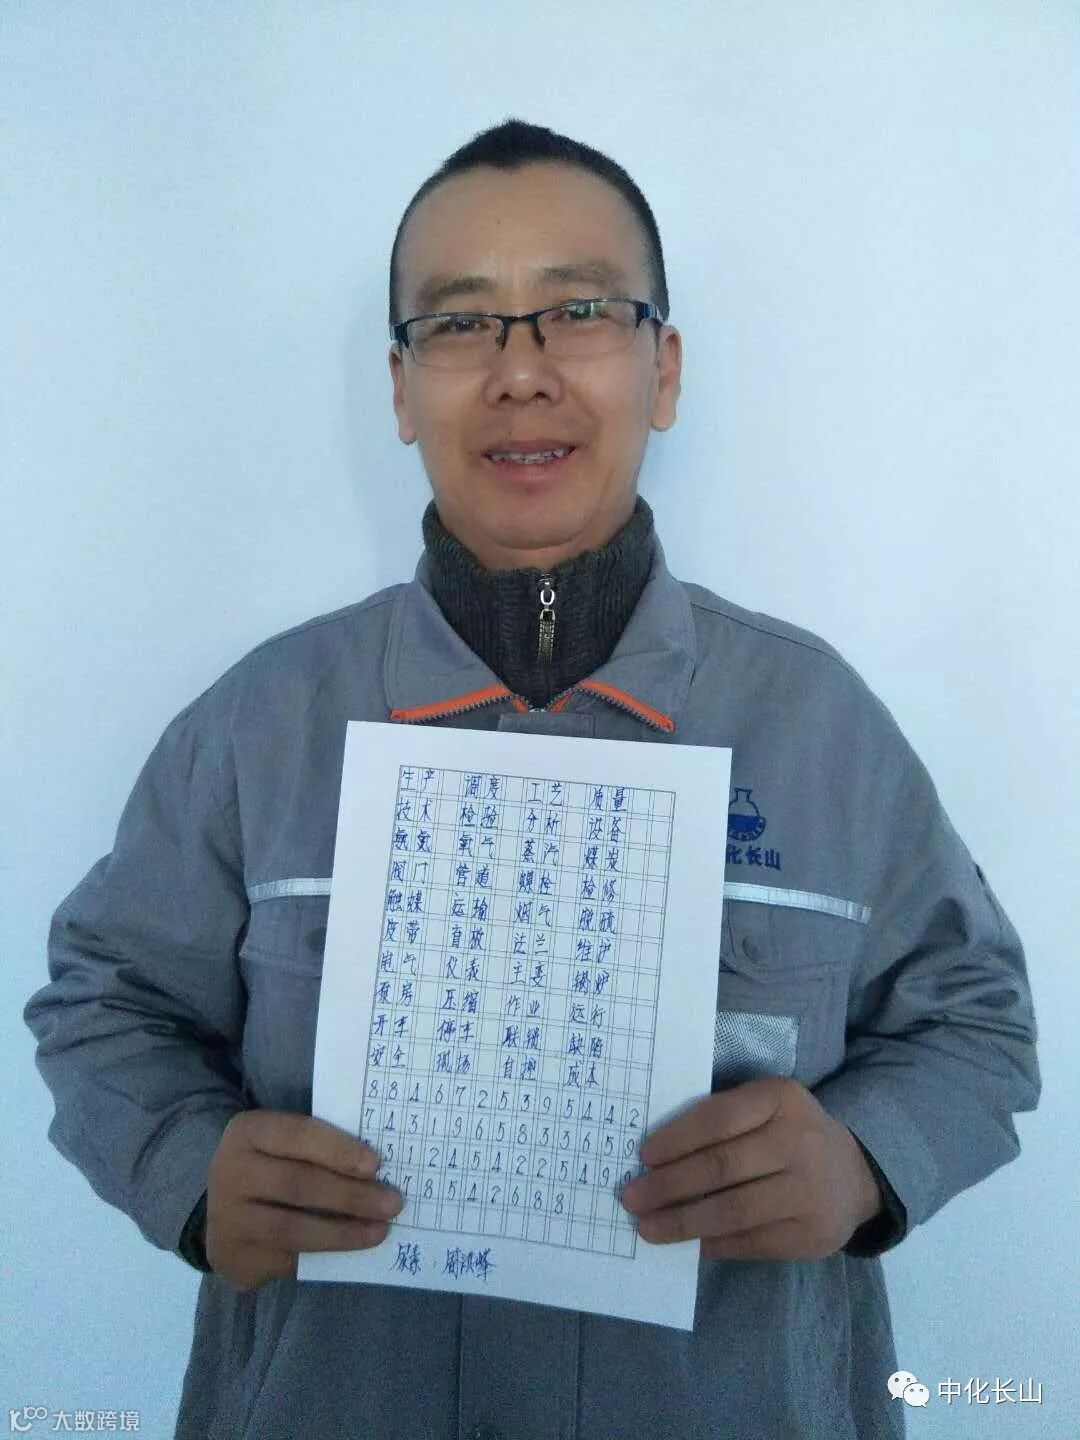 生产 调度 工艺 质量
技术 检验 分析 设备
氨氮 氧气 蒸汽 煤炭
阀门 管道 螺栓 检修
触媒 运输 烟气 脱硫
皮带 盲板 法兰 维护
电气 仪表 主变 锅炉
泵房 压缩 作业 运行
开车 停车 联锁 缺陷
安全 现场 自控 成本
8 8 4 6 7 2 5 3 9 5 4 4 2
7 4 3 1 9 6 5 8 3 3 6 5 9
3 1 2 4 5 4 2 2 5 4 9
7 8 5 4 2 6 8 8
尿素：周洪峰
化长山
中化长山
大数跨境